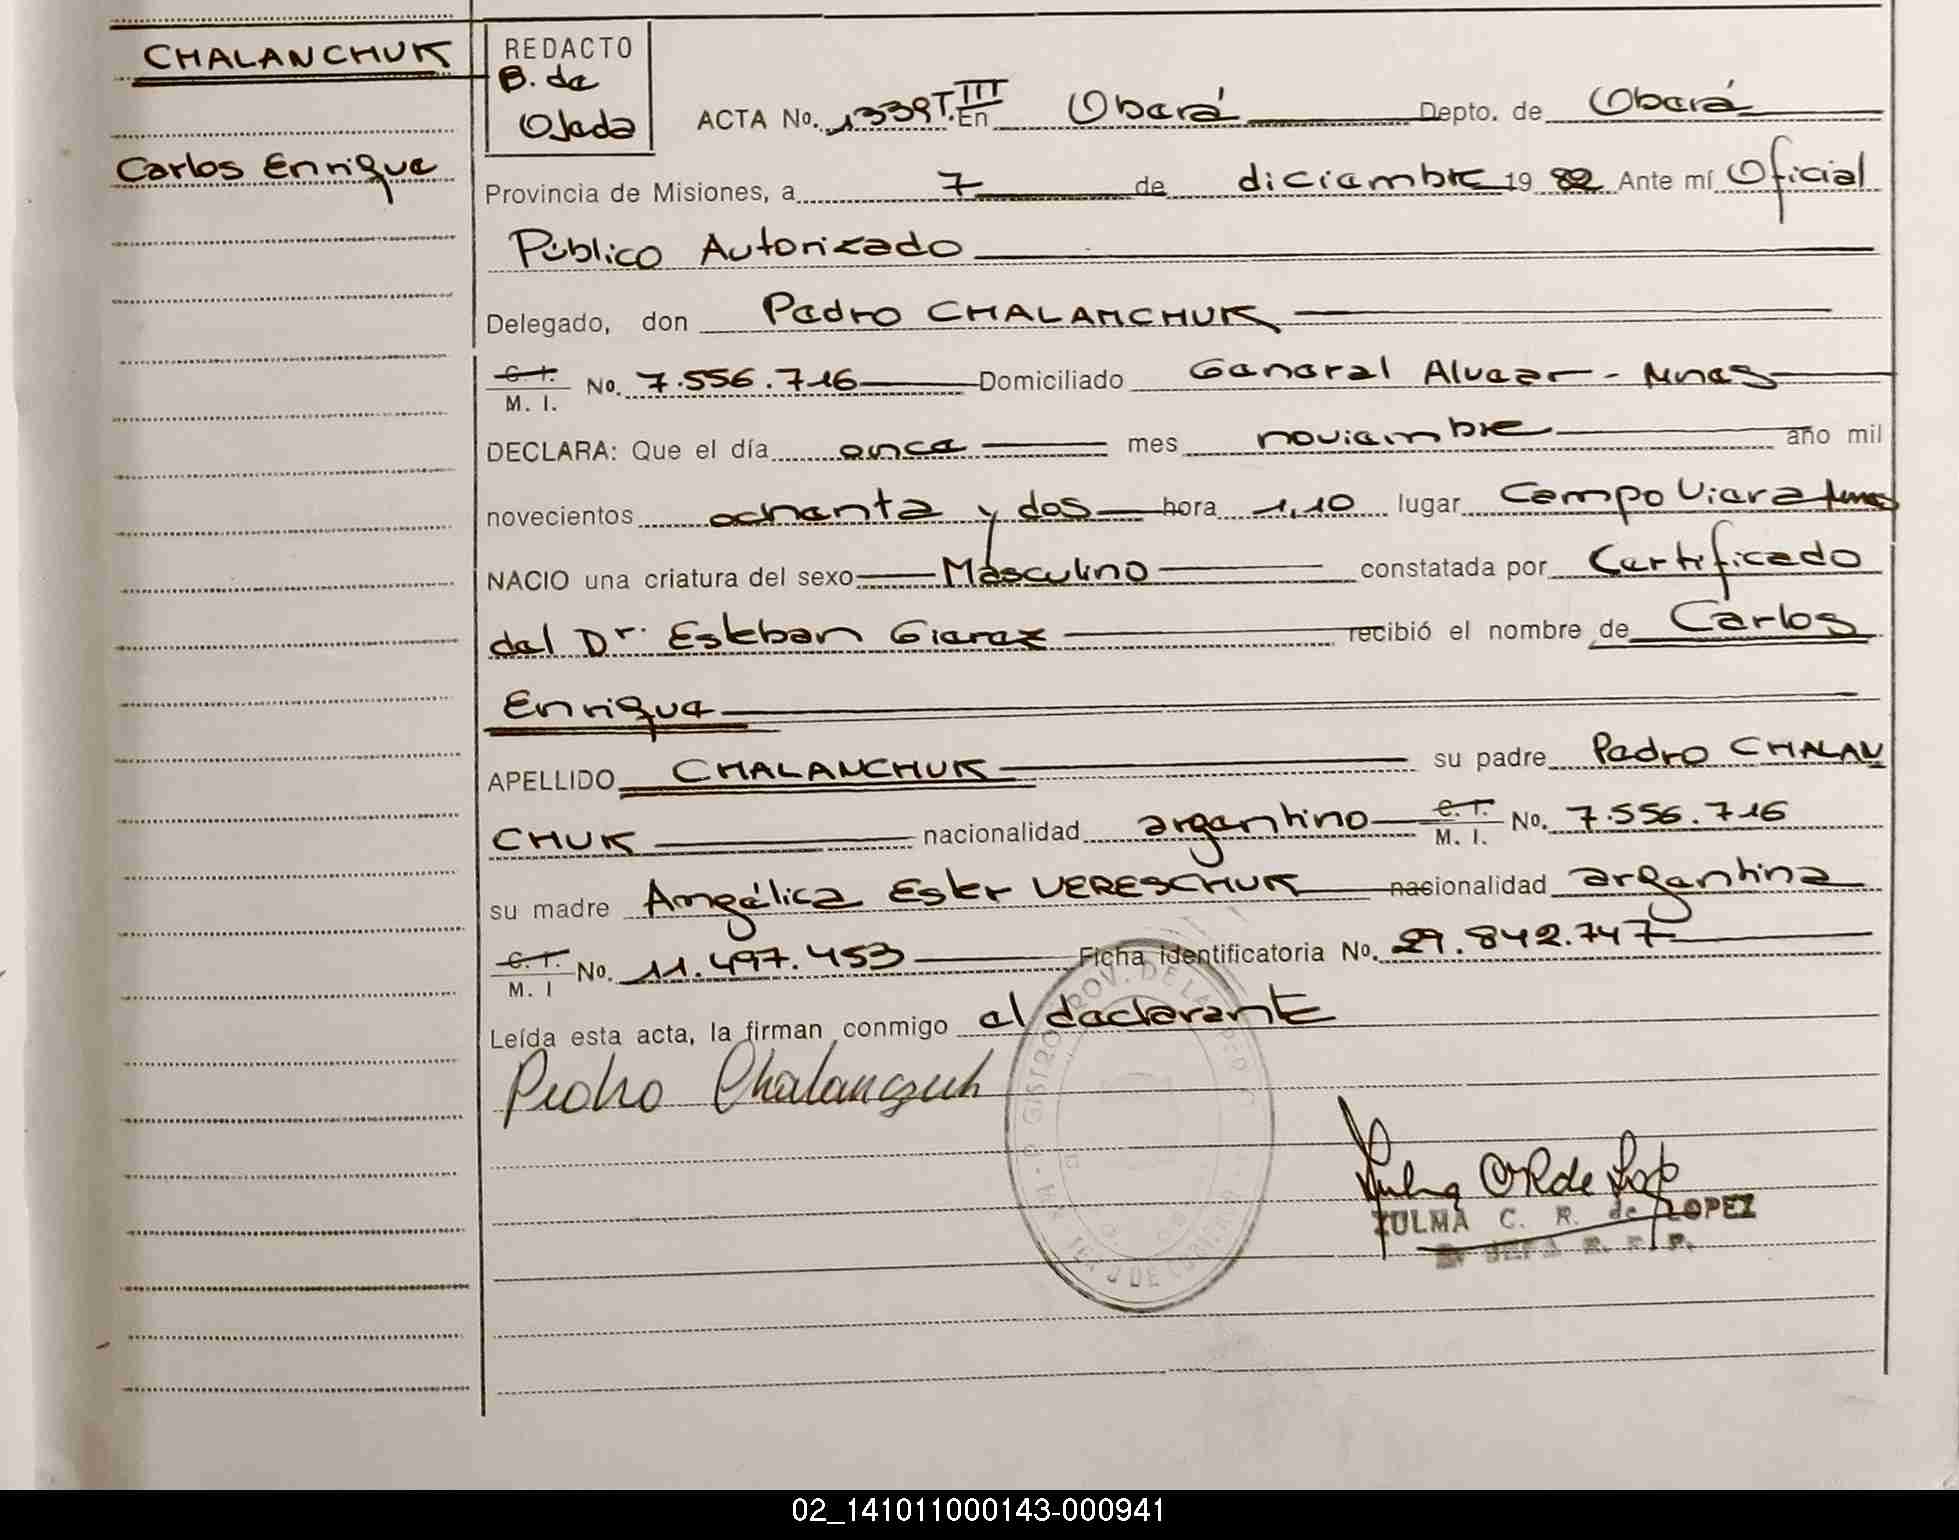 CHALANCHUK
Carlos Enrique
REDACTO
B. de
Ojeda
ACTA No. 1339 T. III En Oberá Depto. de Oberá
Provincia de Misiones, a 7 de diciembre 19 82 Ante mí Oficial
Público Autorizado
Delegado, don Pedro CHALANCHUK
C. I. M. I. No. 7.556.716 Domiciliado General Alvear - Mnes
DECLARA: Que el día once mes noviembre año mil
novecientos ochenta y dos hora 1,10 lugar Campo Viera Mnes
NACIO una criatura del sexo Masculino constatada por Certificado
del Dr. Esteban recibió el nombre de Carlos
Enrique
APELLIDO CHALANCHUK su padre Pedro CHALAN
CHUK nacionalidad argentino C. I. M. I. No. 7.556.716
su madre Angélica Ester VERESCHUK nacionalidad argentina
C. I. M. I No. 11.497.453 Ficha identificatoria No. 29.842.747
Leída esta acta, la firman conmigo el declarante
Pedro Chalanczuk
ZULMA C. R. de LOPEZ
02_141011000143-000941